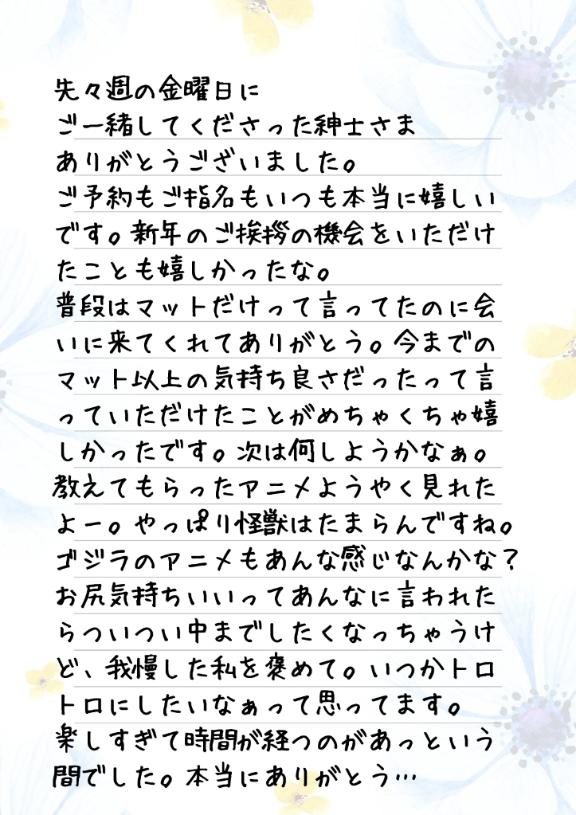 先々週の金曜日に
ご一緒してくださった紳士さま
ありがとうございました。
ご予約もご指名もいつも本当に嬉しい
です。新年のご挨拶の機会をいただけ
たことも嬉しかったな。
普段はマットだけって言ってたのに会
いに来てくれてありがとう。今までの
マット以上の気持ち良さだったって言
っていただけたことがめちゃくちゃ嬉
しかったです。次は何しようかなぁ。
教えてもらったアニメようやく見れた
よー。やっぱり怪獣はたまらんですね。
ゴジラのアニメもあんな感じなんかな？
お尻気持ちいいってあんなに言われた
らついつい中までしたくなっちゃうけ
ど、我慢した私を褒めて。いつかトロ
トロにしたいなぁって思ってます。
楽しすぎて時間が経つのがあっという
間でした。本当にありがとう…